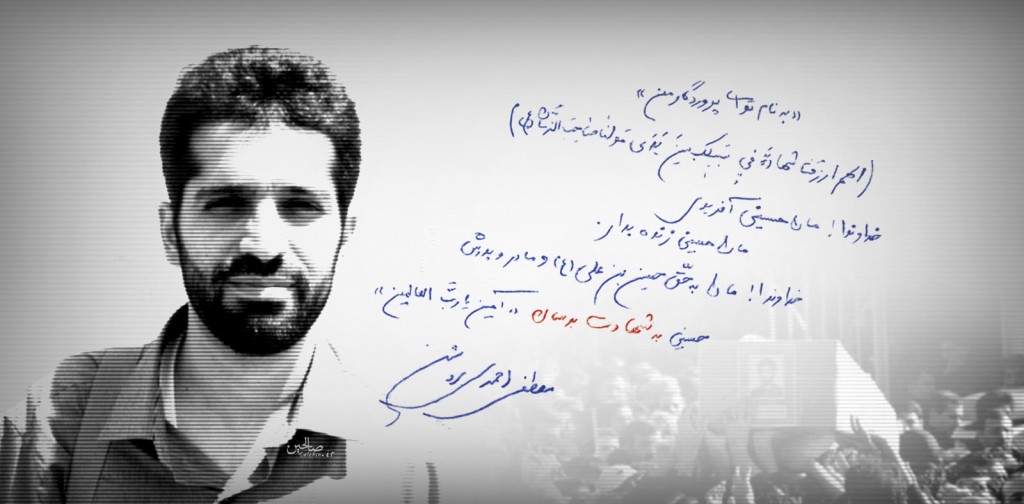 «به نام تو ای پروردگار من»
(اللهم ارزقنا شهادة في سبیلک بین یدی مولانا صاحب الزمان (ع))
خداوندا! ما را حسینی آفریدی
ما را حسینی زنده بدار.
خداوندا! ما را به حقّ حسین بن علی (ع) و مادر و پدرش
حسینی به شهادت برسان «آمین یا ربّ العالمین»
مصطفی احمدی روشن
صالحین